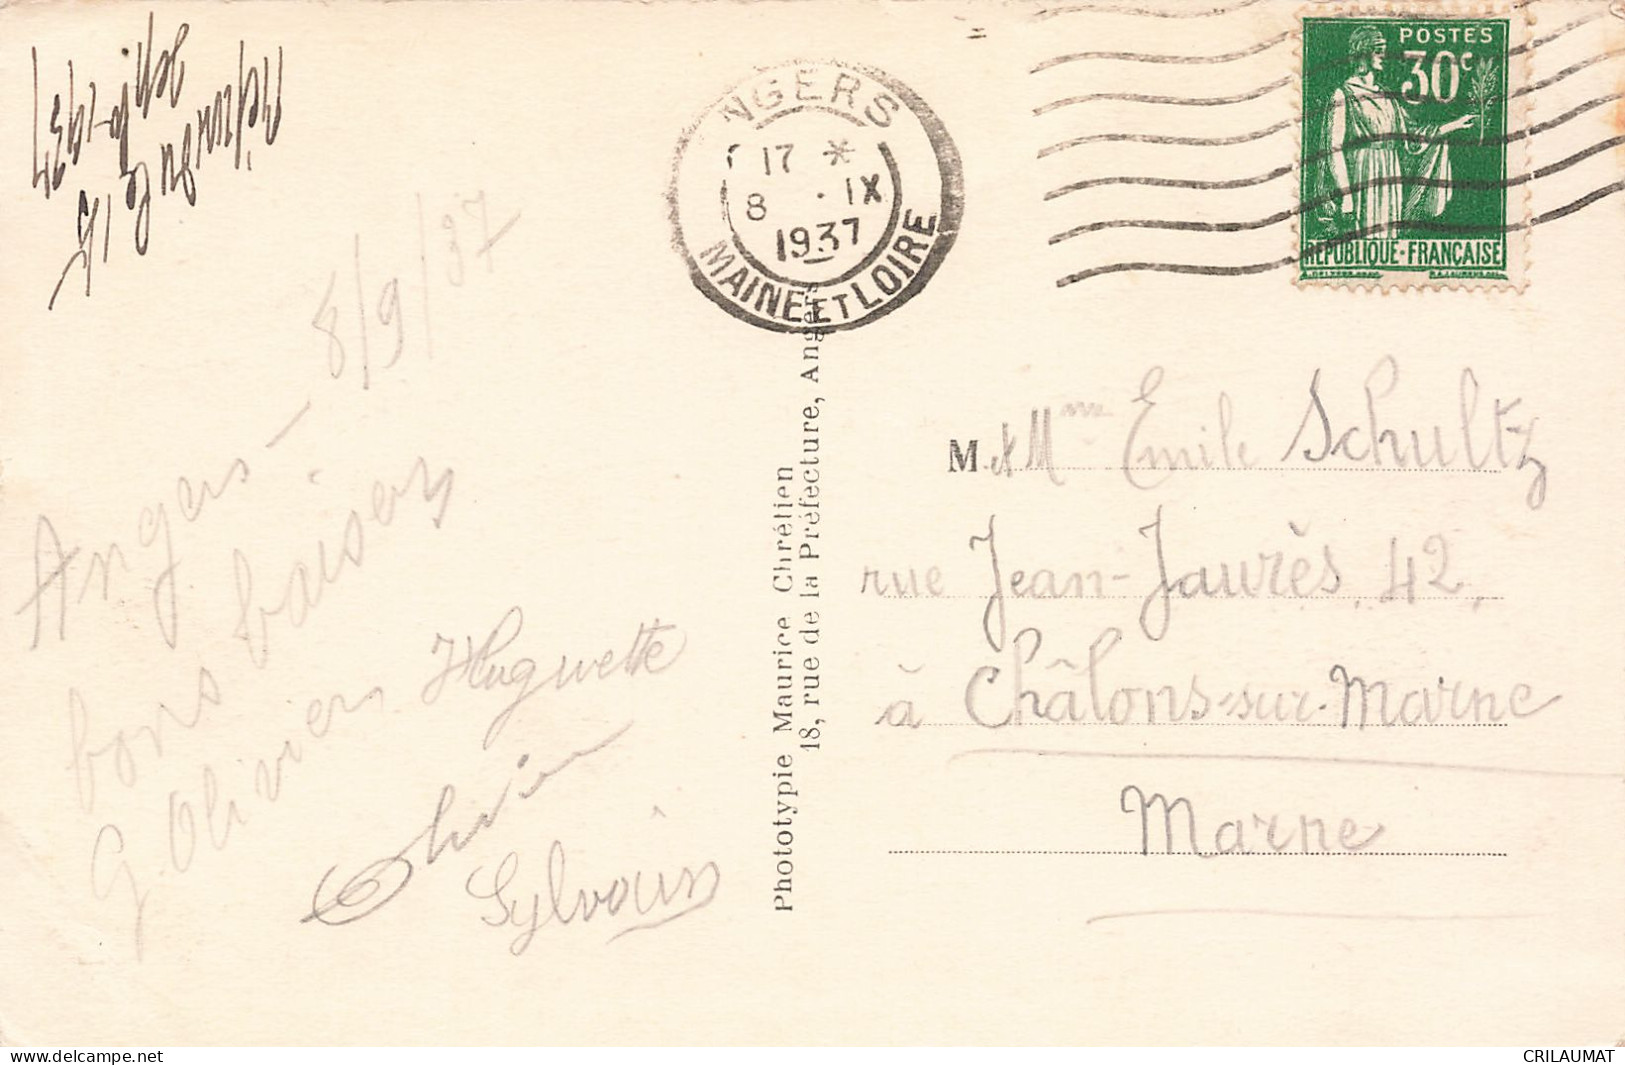 Angers - 8/9/37
bons baisers
G. Olivier Huguette
Olivier
Sylvain
NGERS
17 *
8 . IX
1937
MAINE ET LOIRE
POSTES
30c
REPUBLIQUE·FRANÇAISE
Phototypie Maurice Chrétien
18, rue de la Préfecture, Angers
M. et Mme Emile Schultz
rue Jean-Jaurès, 42,
à Châlons-sur-Marne
Marne
https://www.delcampe.net
CRILAUMAT